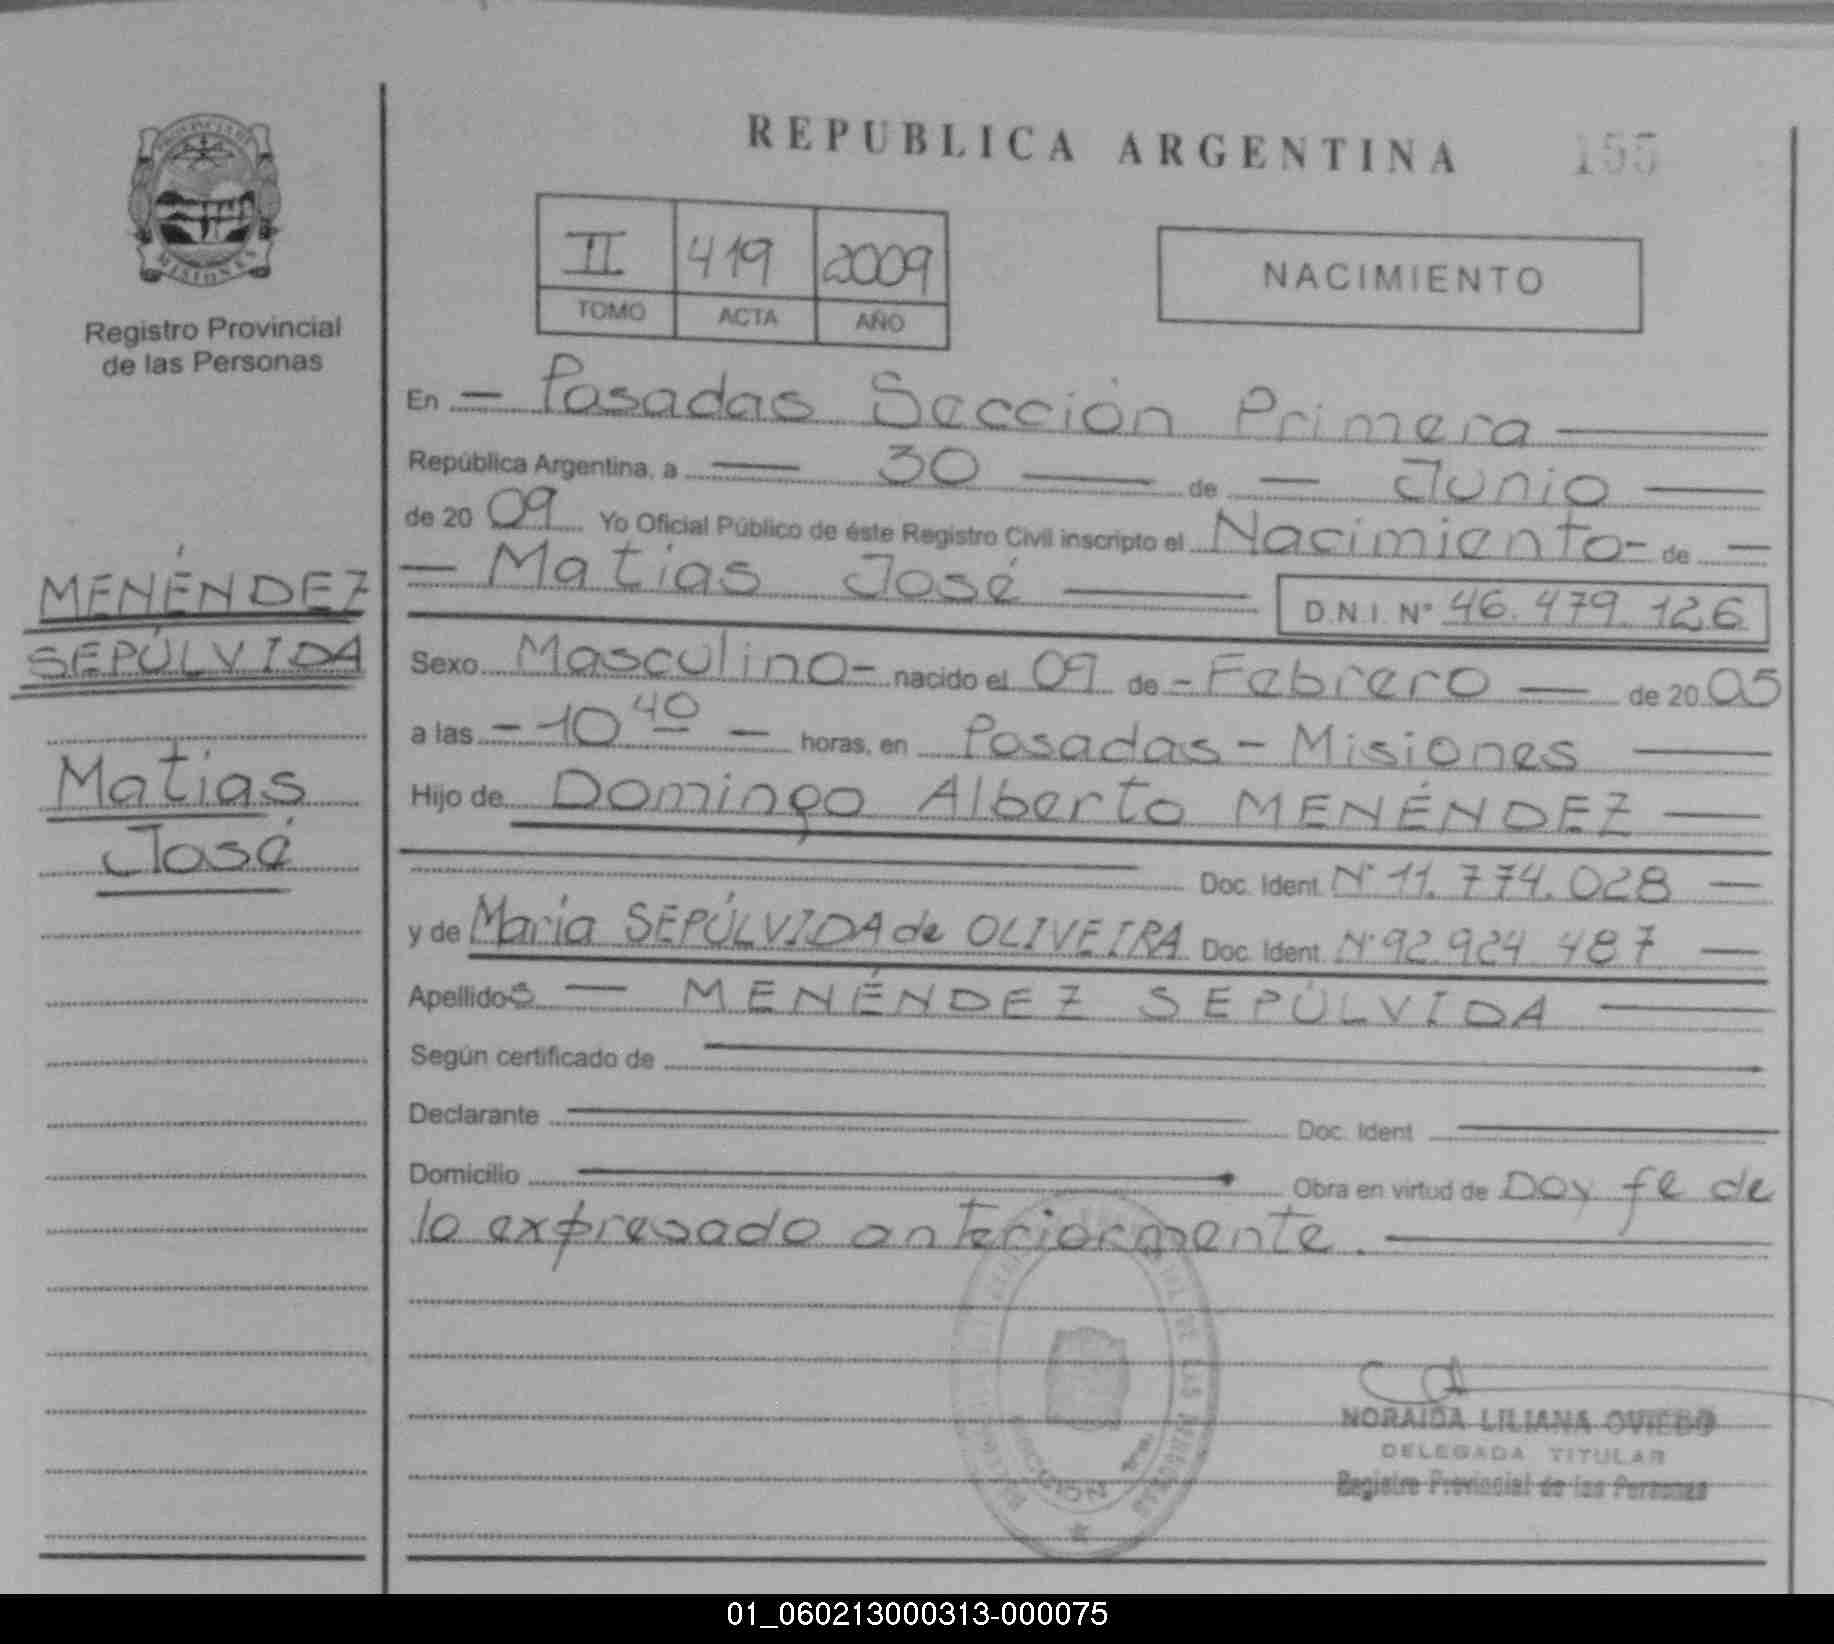 PROVINCIA DE
MISIONES
Registro Provincial
de las Personas
MENÉNDEZ
SEPÚLVIDA
Matias
José
REPUBLICA ARGENTINA 155
II 419 2009
TOMO ACTA AÑO
NACIMIENTO
En — Posadas Sección Primera —
República Argentina, a — 30 — de — Junio —
de 2009 Yo Oficial Público de éste Registro Civil inscripto el Nacimiento- de —
— Matias José — D.N.I. N° 46.479.126
Sexo Masculino- nacido el 09 de - Febrero — de 2005
a las - 10 40 — horas, en Posadas - Misiones —
Hijo de Domingo Alberto MENÉNDEZ —
Doc. Ident. N° 11.774.028 —
y de Maria SEPÚLVIDA de OLIVEIRA Doc. Ident. N° 92.924.487 —
Apellidos — MENÉNDEZ SEPÚLVIDA —
Según certificado de
Declarante Doc. Ident
Domicilio Obra en virtud de Doy fe de
lo expresado anteriormente. —
NORAIDA LILIANA OVIEDO
DELEGADA TITULAR
Registro Provincial de las Personas
01_060213000313-000075